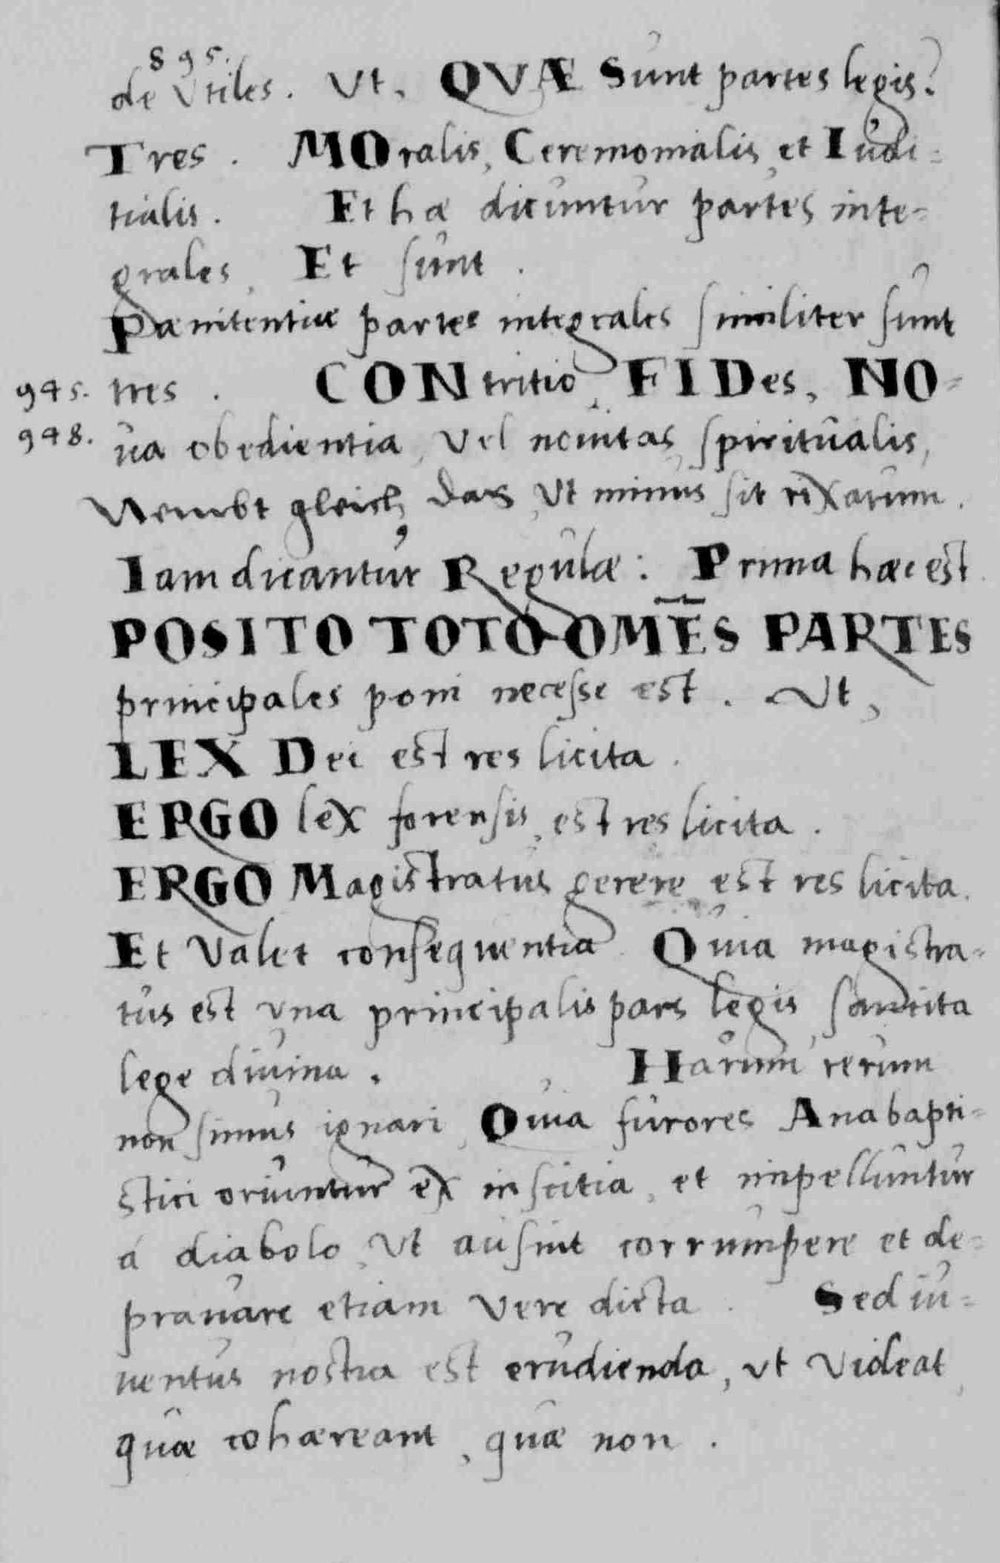 895.
de Vtiles. Vt, QVÆ Sunt partes legis?
Tres. MOralis, Ceremonialis, et Iudi-
tialis. Et hæ dicuntur partes inte-
grales, Et sunt.
Pænitentiæ partes integrales similiter sunt
945. tres. CONtritio, FIDes, NO-
948. ua obedientia, Vel nouitas spiritualis,
Nembt gleich das, Vt minus sit rixarum.
Iam dicantur Regulæ: Prima hæc est
POSITO TOTO OM̃ES PARTES
principales poni necesse est. Vt,
LEX Dei est res licita.
ERGO lex forensis est res licita.
ERGO Magistratus gerere est res licita.
Et Valet consequentia. Quia magistra-
tus est vna principalis pars legis sancita
lege diuina. Harum rerum
non simus ignari, Quia furores Anabapti-
stici oriuntur ex inscitia, et impelluntur
á diabolo, Vt ausint corrumpere et de-
prauare etiam vere dicta. Sed iu-
uentus nostra est erudienda, vt videat,
quæ cohæreant, quæ non.